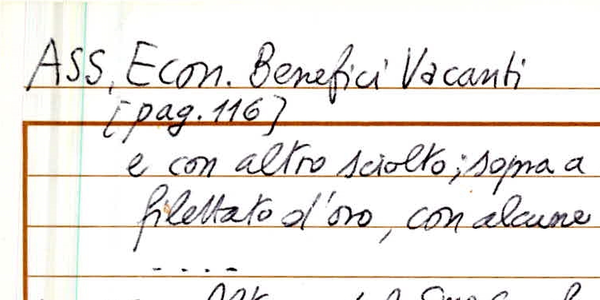 ASS. Econ. Benefici Vacanti
[pag. 116]
e con altro sciolto; sopra a
filettato d'oro, con alcune
....